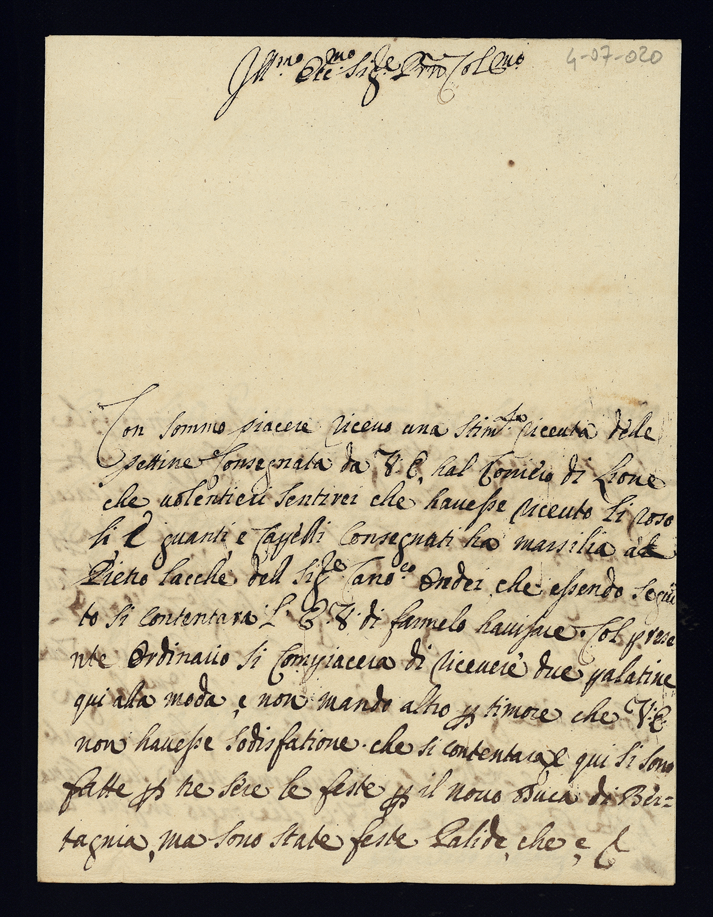 4-07-020
Ill.mo Ecc.mo Sig.e Prn Col.mo
Con sommo piacere ricevo una stim.ta ricevuta delle
pettine Consegnata da V. E. hal Coriero di Lione
che volentieri sentirei che havesse ricevuto li roso
li e guanti e Capelli Consegnati ha marsilia al
Pietro lacchè del Sig.e Cano.co Ordei che essendo segui
to si contentara L. E. V. di farmelo havisare. Col prese
nte Ordinario si Compiacera di ricevere due palatine
qui alla moda, e non mando altro p timore che V. E.
non havesse sodisfatione. che si contentara, e qui si sono
fatte p tre sere le feste p il novo Duca di Ber=
tagnia, ma sono state feste Palide, che e,